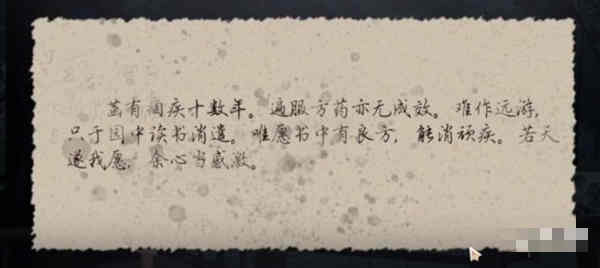 有痼疾十数年。遍服方药亦无成效。难作远游，
只于园中读书消遣。唯愿书中有良方，能消顽疾。若天
遂我愿，余心当感激。